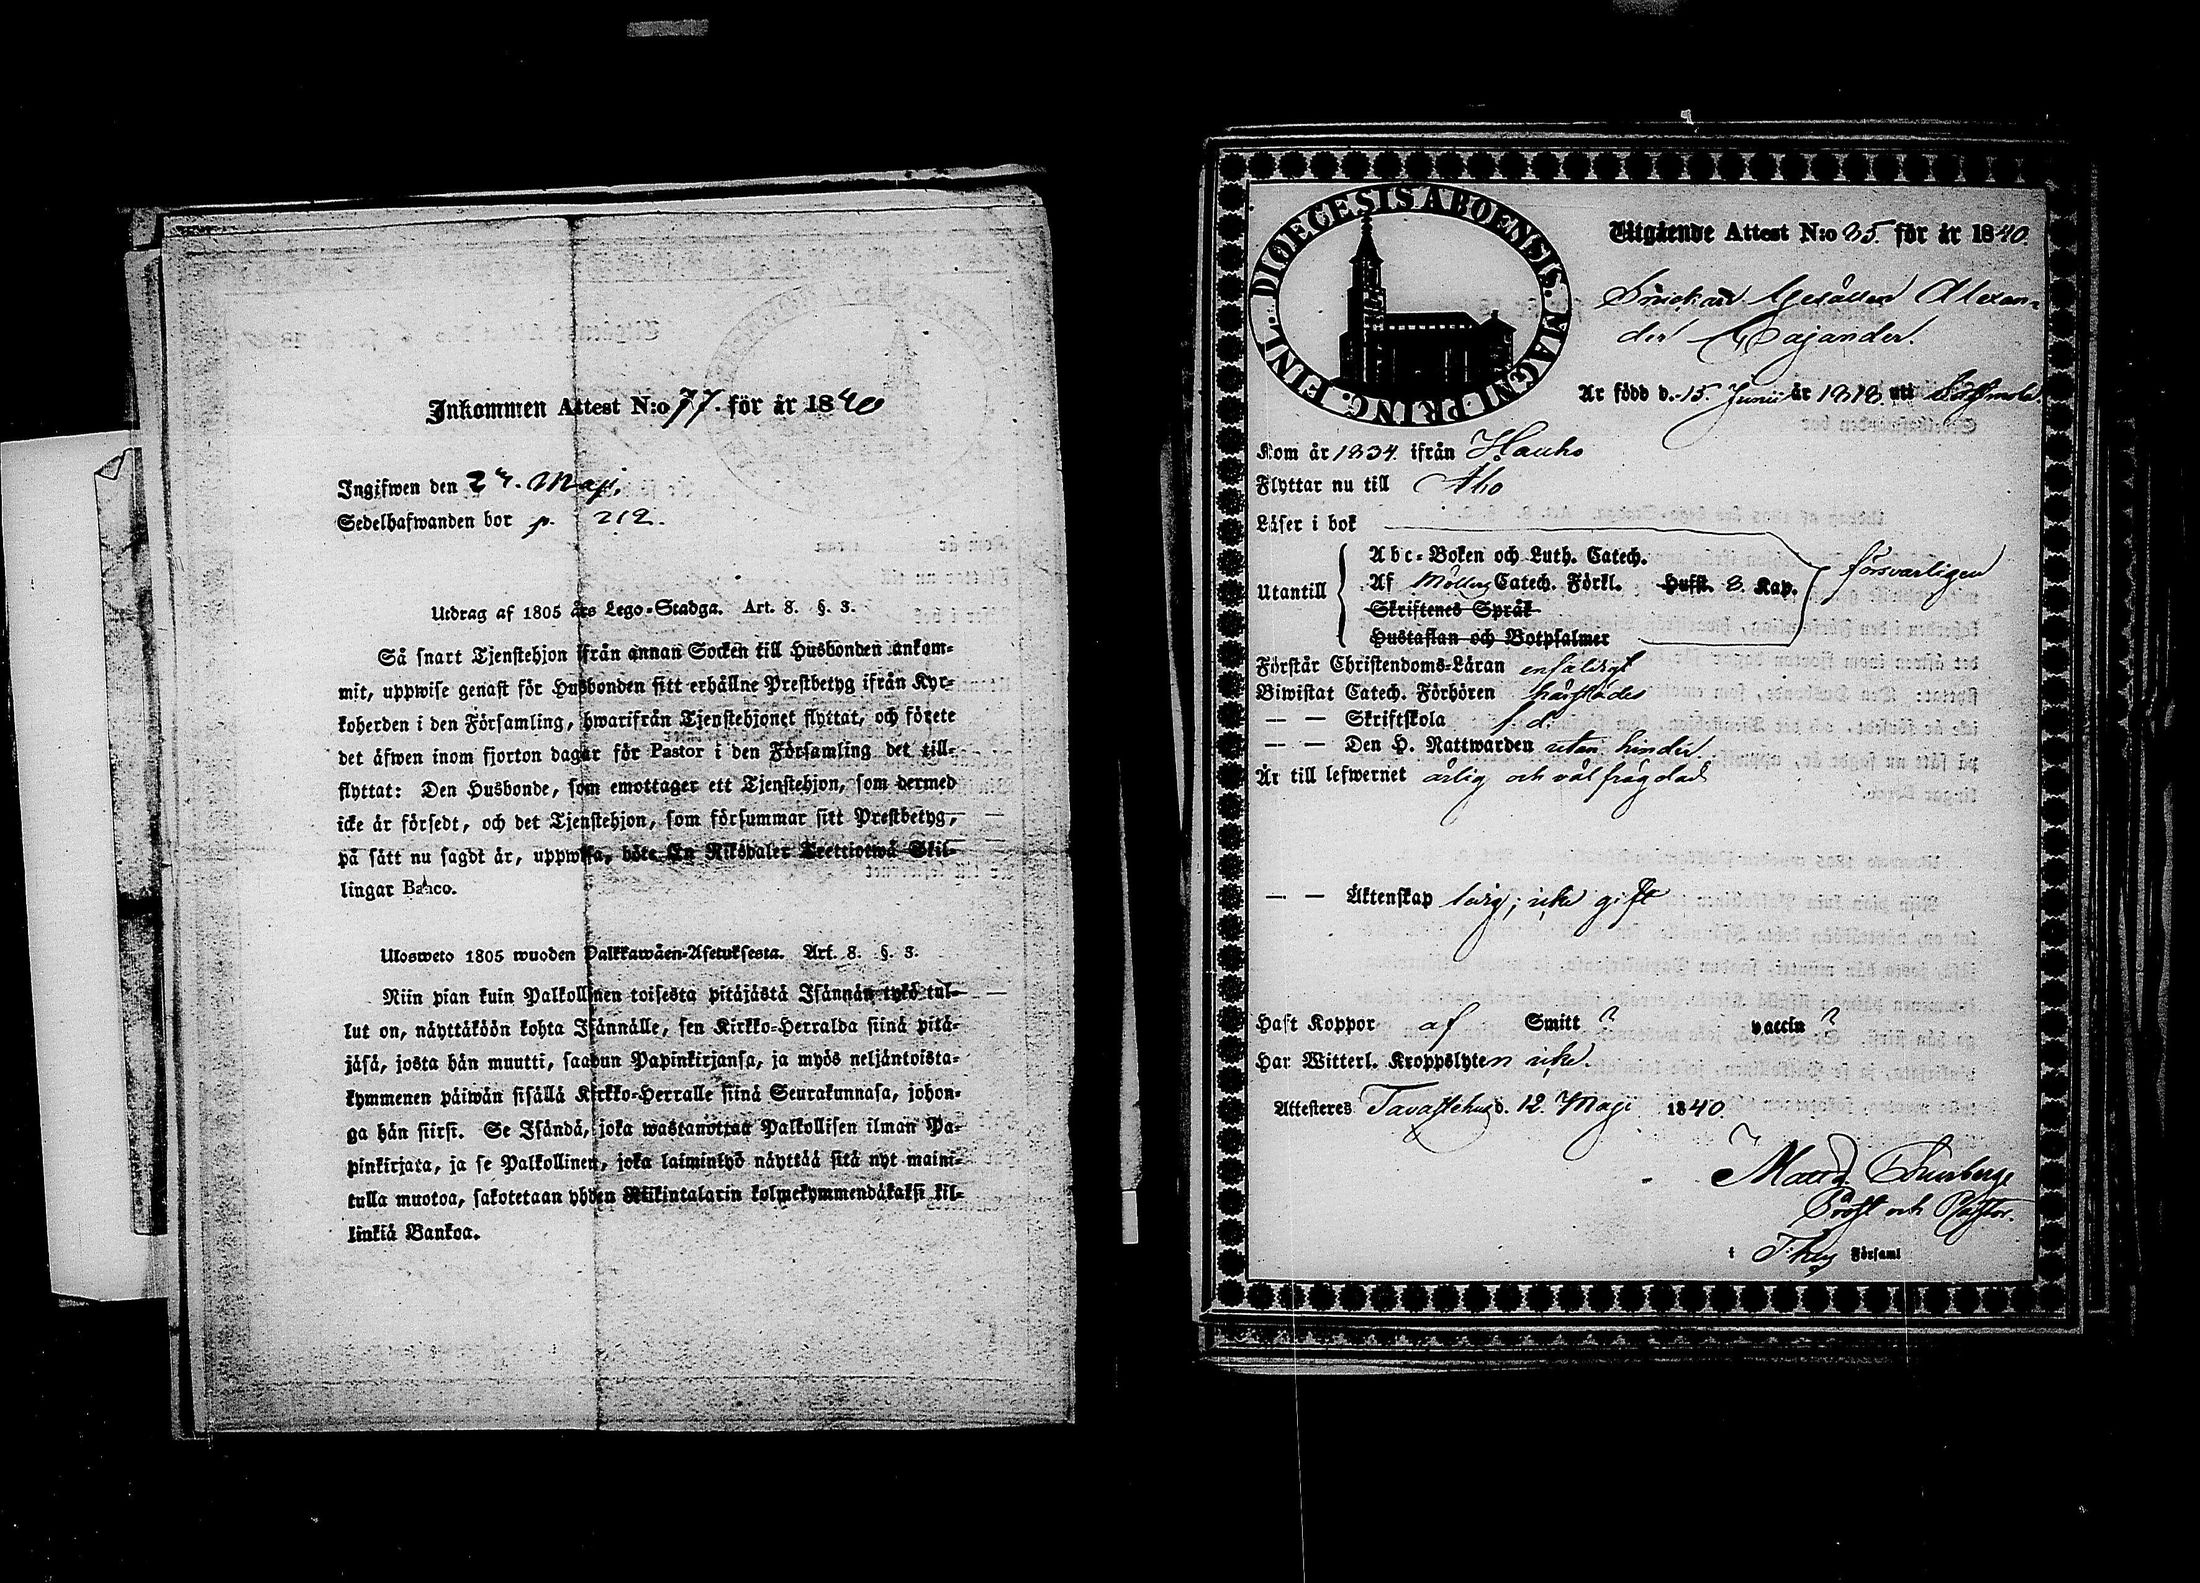 Inkommen Attest N:o 77. för år 1840
Ingifwen den 27. Maji.
Sedelhafwanden bor p. 212.
Utdrag af 1805 års Lego-Stadga. Art. 8. §. 3.
Så snart Tjenstehjon ifrån annan Socken till Husbonden ankom-
mit, uppwise genast för Husbonden sitt erhållne Prestbetyg ifrån Kyr-
koherden i den Församling, hwarifrån Tjenstehjonet flyttat, och förete
det äfwen inom fjorton dagar för Pastor i den Församling det till-
flyttat: Den Husbonde, som emottager ett Tjenstehjon, som dermed
icke är försedt, och det Tjenstehjon, som försummar sitt Prestbetyg,
på sätt nu sagdt är, uppwisa, böte En Riksdaler Trettiotwå Skil-
lingar Banco.
Ulosweto 1805 wuoden Palkkawäen-Asetuksesta. Art. 8. §. 3.
Niin pian kuin Palkollinen toisesta pitäjästä Isännän tykö tul-
lut on, näyttäköön kohta Isännälle, sen Kirkko-Herralda siinä pitä-
jäsä, josta hän muutti, saadun Papinkirjansa, ja myös neljäntoista-
kymmenen päiwän sisällä Kirkko-Herralle siinä Seurakunnasa, johon-
ga hän siirsi. Se Isändä, joka wastanottaa Palkollisen ilman Pa-
pinkirjata, ja se Palkollinen, joka laiminlyö näyttää sitä nyt maini-
tulla muotoa, sakotetaan yhden Riikintalarin kolmekymmendäkaksi kil-
linkiä Bankoa.
DIOECESIS ABOENSIS. MAGNI PRINC. FINL.
Utgående Attest N:o 35. för år 1840.
Snickare Gesällen Alexan-
der Majander.
Är född d. 15. Junii år 1818. uti
Kom år 1834. ifrån Hauho
Flyttar nu till Åbo
Läser i bok
Utantill
Abc-Boken och Luth. Catech.
Af Möllers Catech. Förkl. Hufst. 3. Kap.
försvarligen
Skriftenes Språk
Hustaflan och Botpsalmer
Förstår Christendoms-Läran enfaldigt
Biwistat Catech. Förhören härstädes
— — Skriftskola f. d.
— — Den H. Nattwarden utan hinder.
Är till lefwernet ärlig och väl frägdad
— — Äktenskap ledig; icke gift
Haft Koppor af Smitt ? vaccin ?
Har Witterl. Kroppslyten icke.
Attesteres Tavastehus d. 12. Maji 1840.
Prost och Pastor.
i T:hus Församl